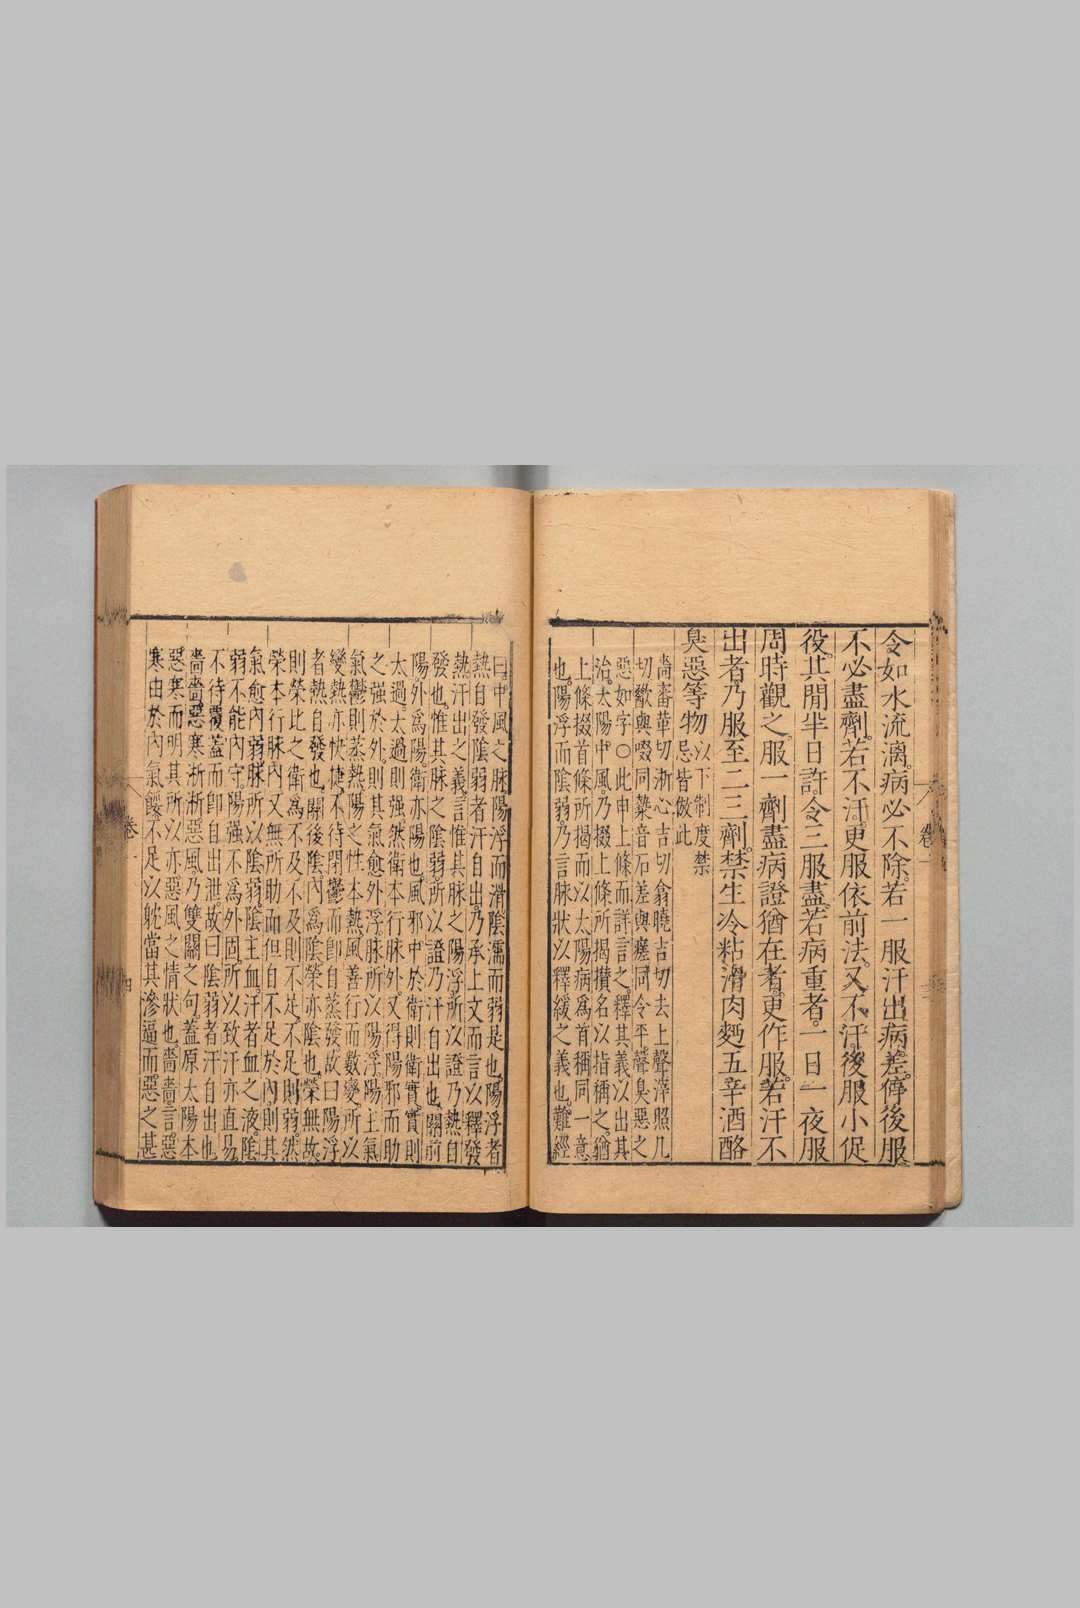 令如水流漓病必不除若一服汗出病差停後服
不必盡劑若不汗更服依前法又不汗後服小促
役其閒半日許令三服盡若病重者一日一夜服
周時觀之服一劑盡病證猶在者更作服若汗不
出者乃服至二三劑禁生冷粘滑肉麪五辛酒酪
臭惡等物以下制度禁忌皆倣此
嗇音嗇淅心吉切翕曉吉切去上聲滓照几
切歠與啜同蘂音石差與瘥同令平聲臭惡之
惡如字○此申上條而詳言之釋其義以出其
治太陽中風乃掇上條所揭攢名以指稱之猶
上條掇首條所揭而以太陽病爲首稱同一意
也陽浮而陰弱乃言脉狀以釋緩之義也難經
曰中風之脉陽浮而滑陰濡而弱是也陽浮者
熱自發陰弱者汗自出乃承上文而言以釋發
熱汗出之義言惟其脉之陽浮所以證乃熱自
發也惟其脉之陰弱所以證乃汗自出也關前
陽外爲陽衛亦陽也風邪中於衛則衛實實則
太過太過則强然衛本行脉外又得陽邪而助
之强於外則其氣愈外浮脉所以陽浮陽主氣
氣鬱則蒸熱陽之性本熱風善行而數變所以
變熱亦快捷不待閉鬱而卽自蒸發故曰陽浮
者熱自發也關後陰內爲陰榮亦陰也榮無故
則榮比之衛爲不及不及則不足不足則弱然
榮本行脉內又無所助而但自不足於內則其
氣愈內弱脉所以陰弱陰主血汗者血之液陰
弱不能內守陽强不爲外固所以致汗亦直易
不待覆蓋而卽自出泄故曰陰弱者汗自出也
嗇嗇惡寒淅淅惡風乃雙關之句蓋原太陽本
惡寒而明其所以亦惡風之情狀也嗇嗇言惡
寒由於內氣餒不足以躭當其滲逼而惡之甚
卷一
卷一
四